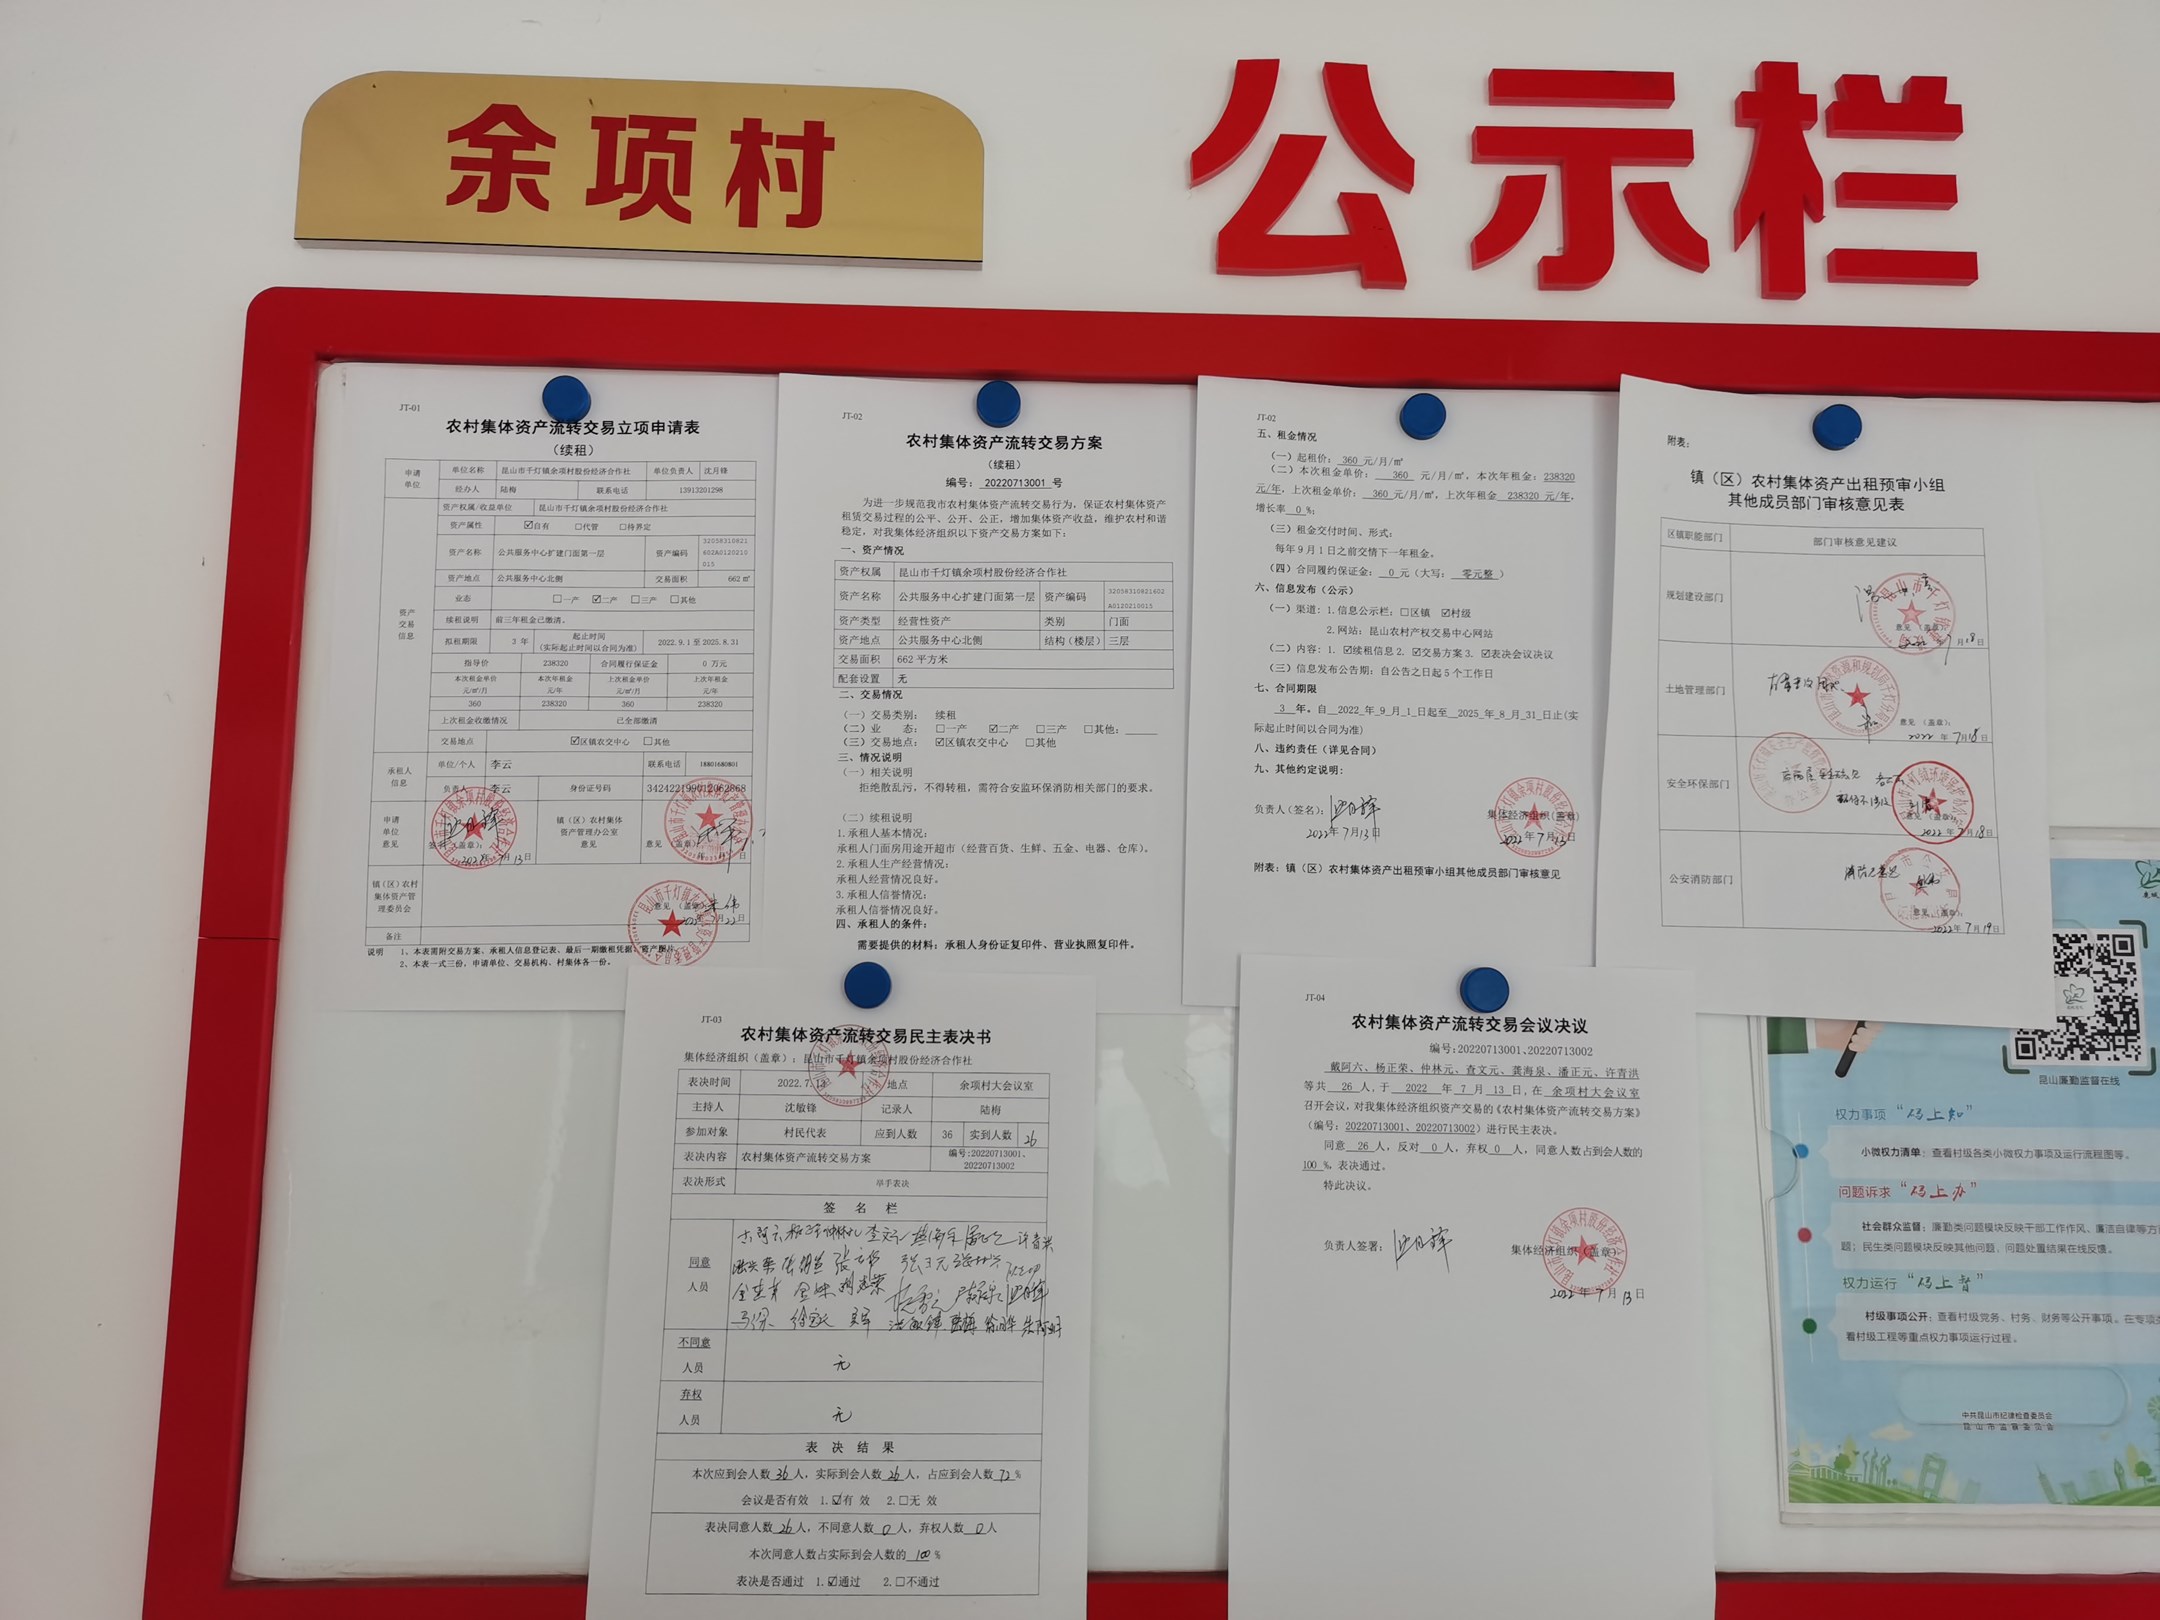 余项村
公示栏
JT-01
农村集体资产流转交易立项申请表
（续租）
申请单位 单位名称 昆山市千灯镇余项村股份经济合作社 单位负责人 沈月锋
经办人 陆梅 联系电话 13913201298
资产交易信息
资产权属/收益单位 昆山市千灯镇余项村股份经济合作社
资产属性 ☑自有 □代管 □待界定
资产名称 公共服务中心扩建门面第一层 资产编码 32058310821602A0120210015
资产地点 公共服务中心北侧 交易面积 662㎡
业态 □一产 ☑二产 □三产 □其他
续租说明 前三年租金已缴清。
拟租期限 3 年 起止时间（实际起止时间以合同为准） 2022.9.1 至 2025.8.31
指导价 238320 合同履行保证金 0 万元
本次租金单价 元/㎡/月 本次年租金 元/年 上次租金单价 元/㎡/月 上次年租金 元/年
360 238320 360 238320
上次租金收缴情况 已全部缴清
交易地点 ☑区镇农交中心 □其他
承租人信息 单位/个人 李云 联系电话 18801680801
负责人 李云 身份证号码 342422199012062868
申请单位意见 镇（区）农村集体资产管理办公室意见 意见（盖章）
2022年7月13日
镇（区）农村集体资产管理委员会 意见（盖章）
2022年7月22日
备注
说明 1、本表需附交易方案、承租人信息登记表、最后一期缴租凭据、资产图片。
2、本表一式三份，申请单位、交易机构、村集体各一份。
JT-02
农村集体资产流转交易方案
（续租）
编号：20220713001 号
为进一步规范我市农村集体资产流转交易行为，保证农村集体资产
租赁交易过程的公平、公开、公正，增加集体资产收益，维护农村和谐
稳定，对我集体经济组织以下资产交易方案如下：
一、资产情况
资产权属 昆山市千灯镇余项村股份经济合作社
资产名称 公共服务中心扩建门面第一层 资产编码 32058310821602A0120210015
资产类型 经营性资产 类别 门面
资产地点 公共服务中心北侧 结构（楼层） 三层
交易面积 662 平方米
配套设置 无
二、交易情况
（一）交易类别： 续租
（二）业 态： □一产 ☑二产 □三产 □其他：
（三）交易地点： ☑区镇农交中心 □其他
三、情况说明
（一）相关说明
拒绝散乱污，不得转租，需符合安监环保消防相关部门的要求。
（二）续租说明
1.承租人基本情况：
承租人门面房用途开超市（经营百货、生鲜、五金、电器、仓库）。
2.承租人生产经营情况：
承租人经营情况良好。
3.承租人信誉情况：
承租人信誉情况良好。
四、承租人的条件：
需要提供的材料：承租人身份证复印件、营业执照复印件。
JT-02
五、租金情况
（一）起租价： 360 元/月/㎡
（二）本次租金单价： 360 元/月/㎡，本次年租金：238320
元/年，上次租金单价： 360 元/月/㎡，上次年租金 238320 元/年，
增长率 0 %；
（三）租金交付时间、形式：
每年9月1日之前交情下一年租金。
（四）合同履约保证金： 0 元（大写： 零元整 ）
六、信息发布（公示）
（一）渠道：1.信息公示栏：□区镇 ☑村级
2.网站：昆山农村产权交易中心网站
（二）内容：1. ☑续租信息 2. ☑交易方案 3. ☑表决会议决议
（三）信息发布公告期：自公告之日起 5 个工作日
七、合同期限
3 年，自 2022 年 9 月 1 日起至 2025 年 8 月 31 日止（实
际起止时间以合同为准）
八、违约责任（详见合同）
九、其他约定说明：
负责人（签名）： 集体经济组织（盖章）
2022年7月13日 2022年7月13日
附表：镇（区）农村集体资产出租预审小组其他成员部门审核意见
附表：
镇（区）农村集体资产出租预审小组
其他成员部门审核意见表
区镇职能部门 部门审核意见建议
规划建设部门
意见（盖章）：
2022年7月18日
土地管理部门
意见（盖章）：
2022年7月18日
安全环保部门
意见（盖章）：
2022年7月18日
公安消防部门
意见（盖章）：
2022年7月19日
JT-03
农村集体资产流转交易民主表决书
集体经济组织（盖章）：昆山市千灯镇余项村股份经济合作社
表决时间 2022.7.13 地点 余项村大会议室
主持人 沈敏锋 记录人 陆梅
参加对象 村民代表 应到人数 36 实到人数 26
表决内容 农村集体资产流转交易方案 编号:20220713001、20220713002
表决形式 举手表决
签 名 栏
同意人员
不同意人员 无
弃权人员 无
表 决 结 果
本次应到会人数 36 人，实际到会人数 26 人，占应到会人数 72 %
会议是否有效 1.☑有 效 2.□无 效
表决同意人数 26 人，不同意人数 0 人，弃权人数 0 人
本次同意人数占实际到会人数的 100 %
表决是否通过 1.☑通过 2.□不通过
JT-04
农村集体资产流转交易会议决议
编号:20220713001、20220713002
戴阿六、杨正荣、仲林元、查文元、龚海泉、潘正元、许青洪
等共 26 人，于 2022 年 7 月 13 日，在 余项村大会议室
召开会议，对我集体经济组织资产交易的《农村集体资产流转交易方案》
（编号：20220713001、20220713002）进行民主表决。
同意 26 人，反对 0 人，弃权 0 人，同意人数占到会人数的
100 %，表决通过。
特此决议。
负责人签署： 集体经济组织（盖章）
2022年7月13日
昆山廉勤监督在线
权力事项“码上知”
小微权力清单：查看村级各类小微权力事项及运行流程图等。
问题诉求“码上办”
社会群众监督：廉勤类问题模块反映干部工作作风、廉洁自律等方
题；民生类问题模块反映其他问题，问题处置结果在线反馈。
权力运行“码上督”
村级事项公开：查看村级党务、村务、财务等公开事项。在专项
看村级工程等重点权力事项运行过程。
中共昆山市纪律检查委员会
昆山市监察委员会